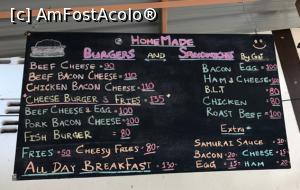 [c] AmFostAcolo®
HomeMade
Burgers and Sandwiches By Gof
Beef Cheese = 90
Beef Bacon Cheese = 110
Chicken Bacon Cheese = 110
*Cheese Burger & Fries* = 135
Beef Cheese & Egg = 100
Pork Bacon Cheese = 100
Fish Burger = 80
Fries = 50 Cheesy Fries - 80 -
All Day Breakfast - 130 -
Bacon Egg = 100
Ham & Cheese = 100
B.L.T = 80
Chicken = 80
Roast Beef = 100
Extra
Samurai Sauce - 30 -
Bacon - 20 - Cheese - 15 -
Egg - 15 - Ham - 20 -